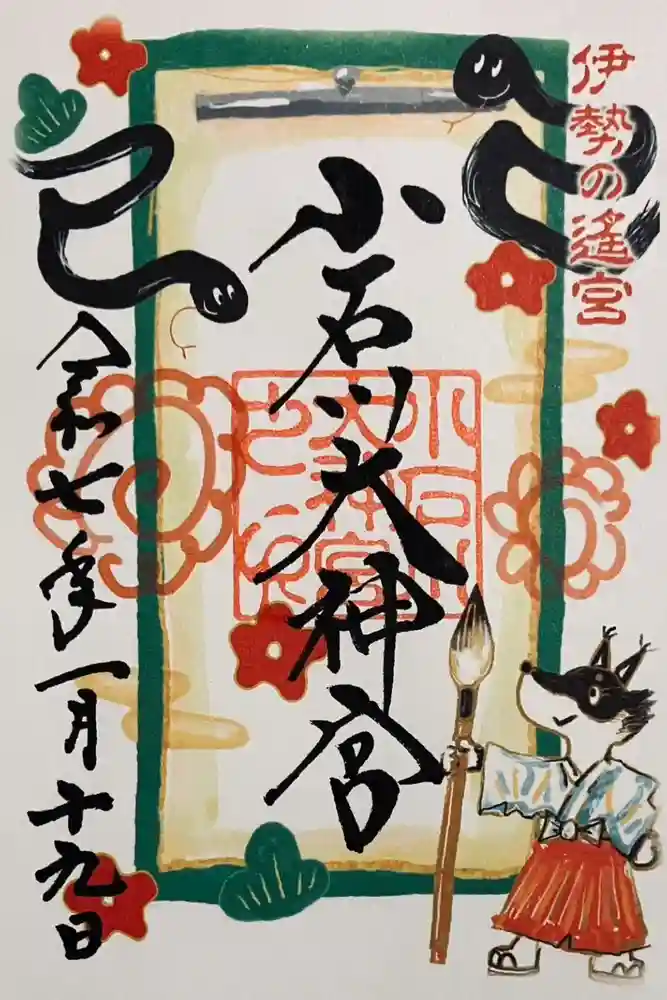 伊勢の遙宮
小石川大神宮
小石川
大神宮
令和七年一月十九日